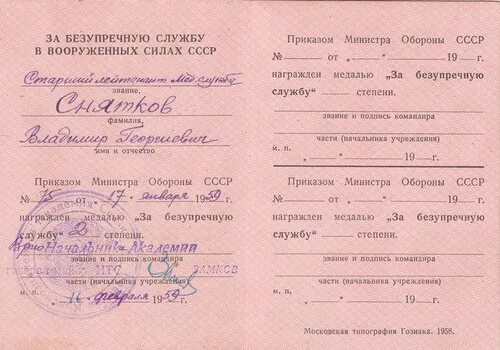 ЗА БЕЗУПРЕЧНУЮ СЛУЖБУ
В ВООРУЖЕННЫХ СИЛАХ СССР
Старший лейтенант мед. службы
звание,
Снятков
фамилия,
Владимир Георгиевич
имя и отчество
Приказом Министра Обороны СССР
№ 15 от "17" января 1959 г.
награжден медалью „За безупречную
службу“ 2 степени.
Врио Начальника Академии
звание и подпись командира
части (начальника учреждения)
м. п. "16" февраля 1959 г.
Приказом Министра Обороны СССР
№ от „ “ 19 г.
награжден медалью „За безупречную
службу“ степени.
звание и подпись командира
части (начальника учреждения)
м. п. „ “ 19 г.
Приказом Министра Обороны СССР
№ от „ “ 19 г.
награжден медалью „За безупречную
службу“ степени.
звание и подпись командира
части (начальника учреждения)
м. п. „ “ 19 г.
Московская типография Гознака. 1958.